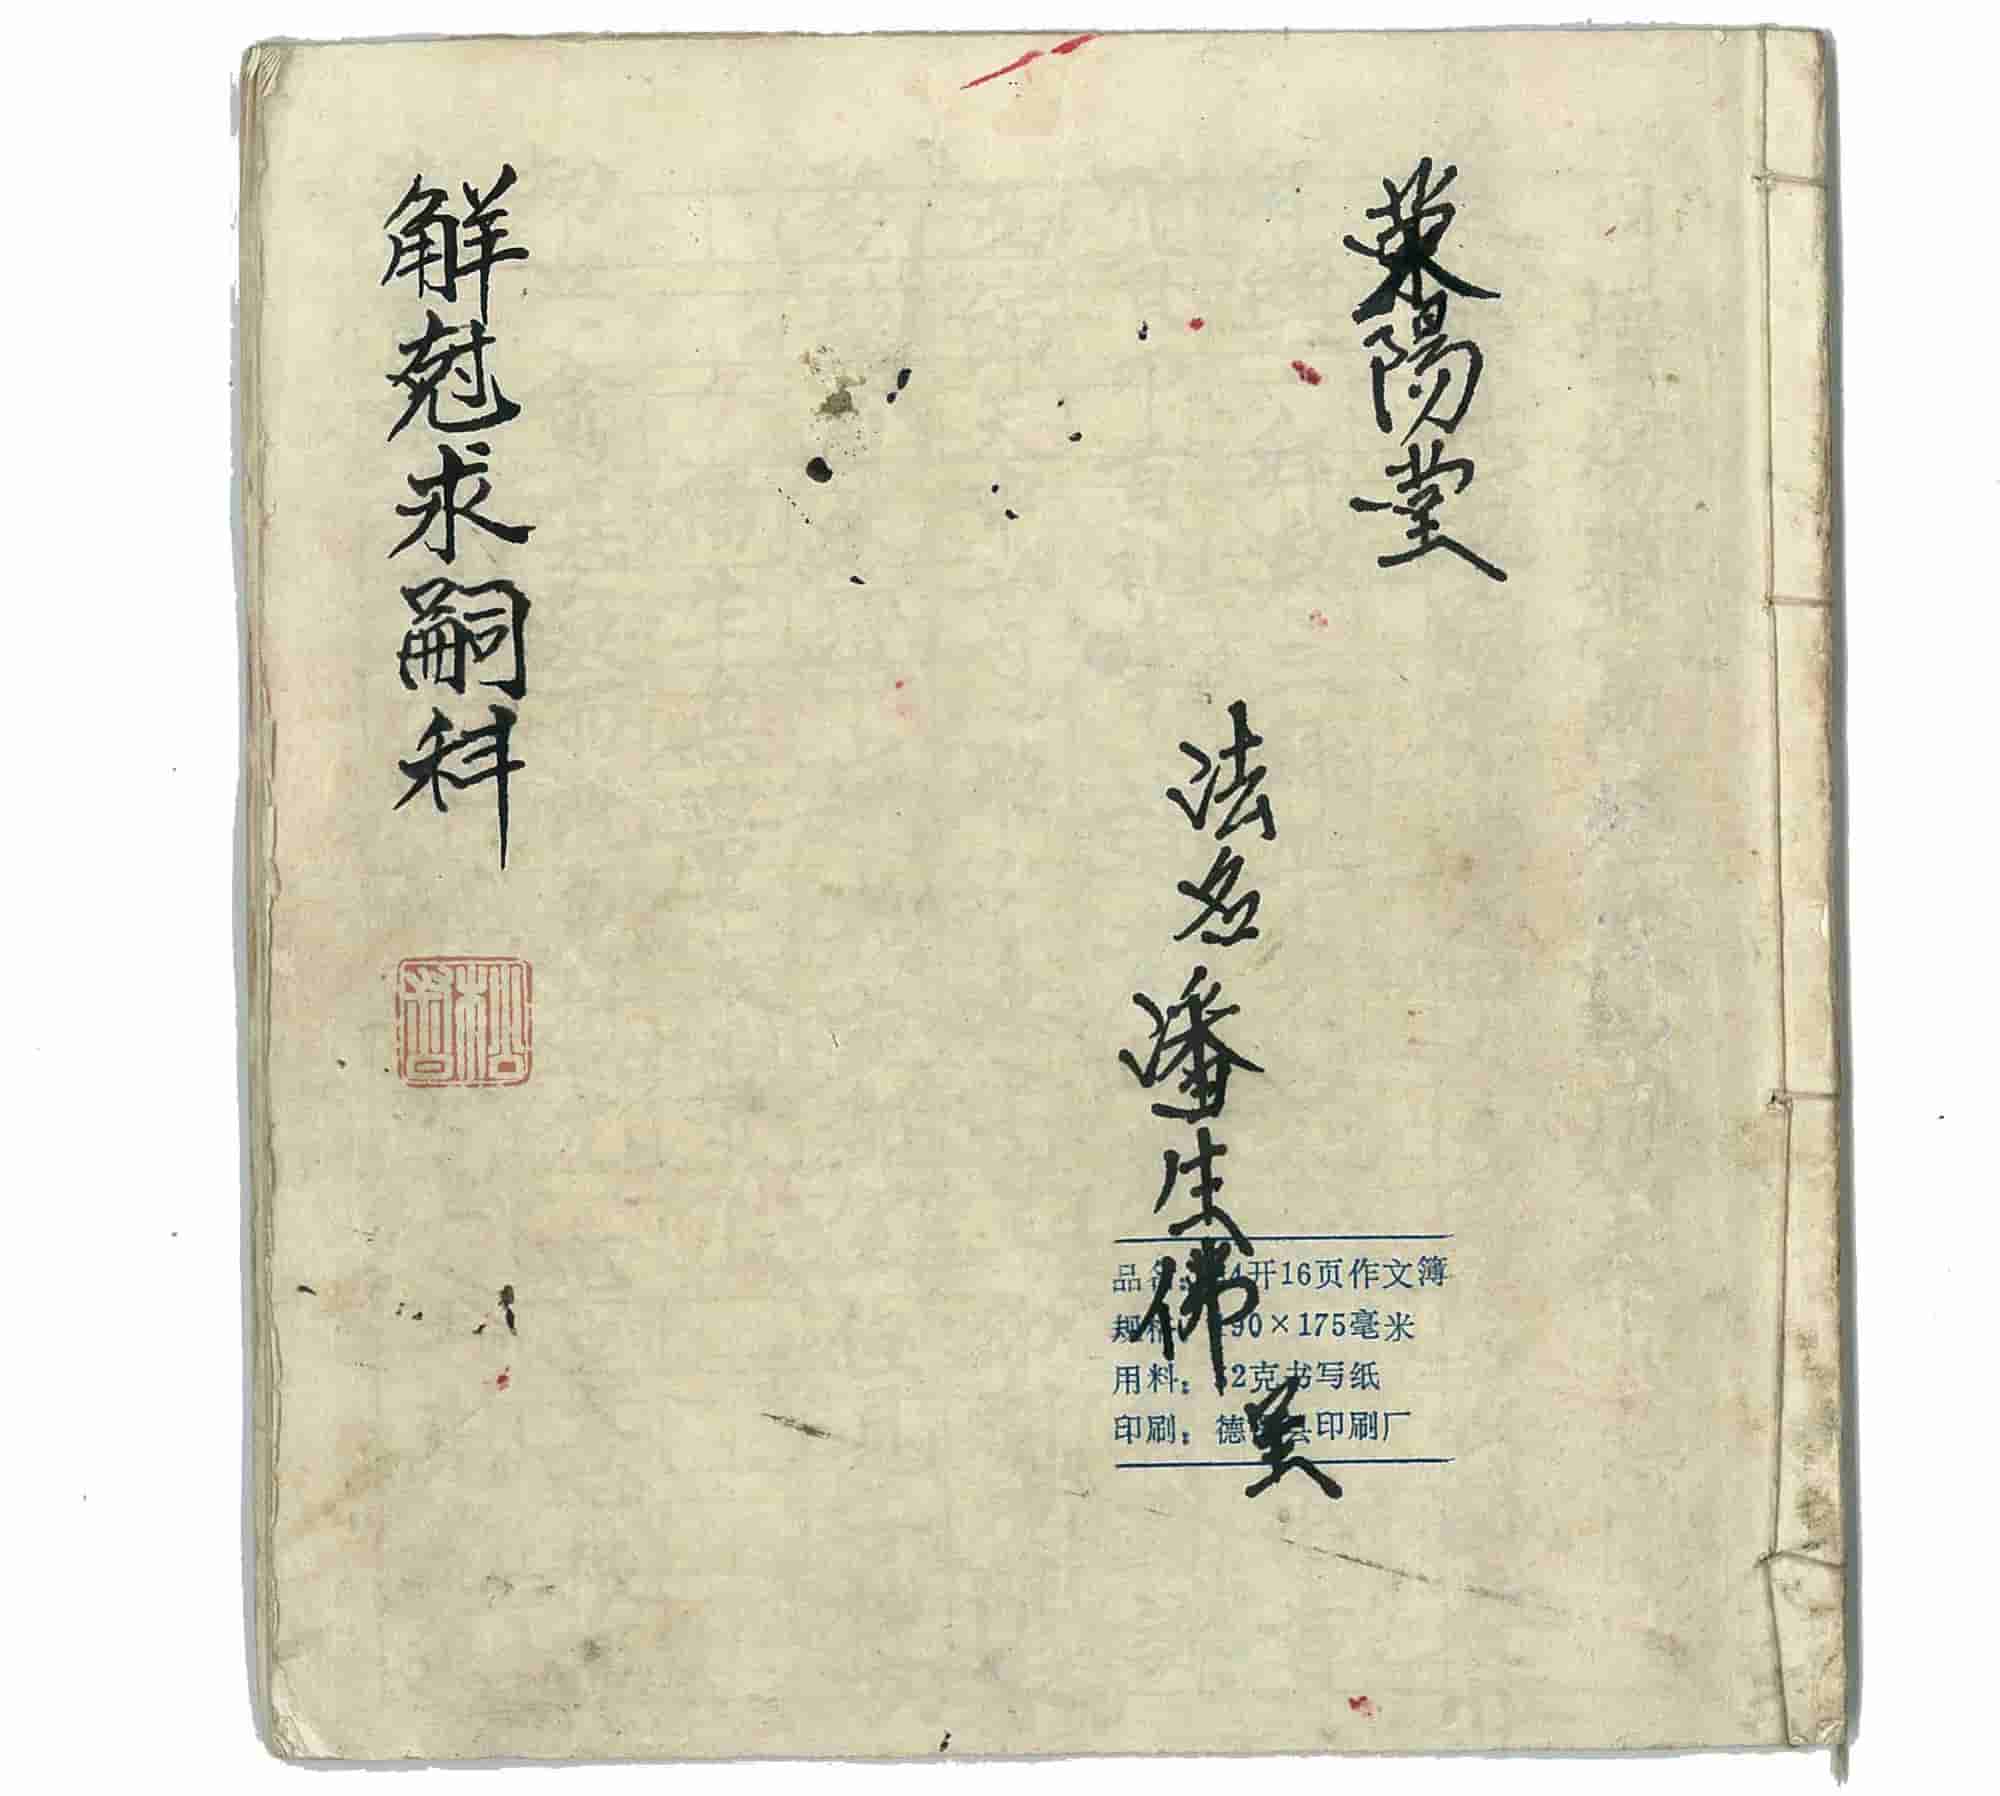 荣陽堂
法名潘生佛
品名：24开16页作文簿
规格：190×175毫米
用料：52克书写纸
印刷：德 县印刷厂
觧尅求嗣科